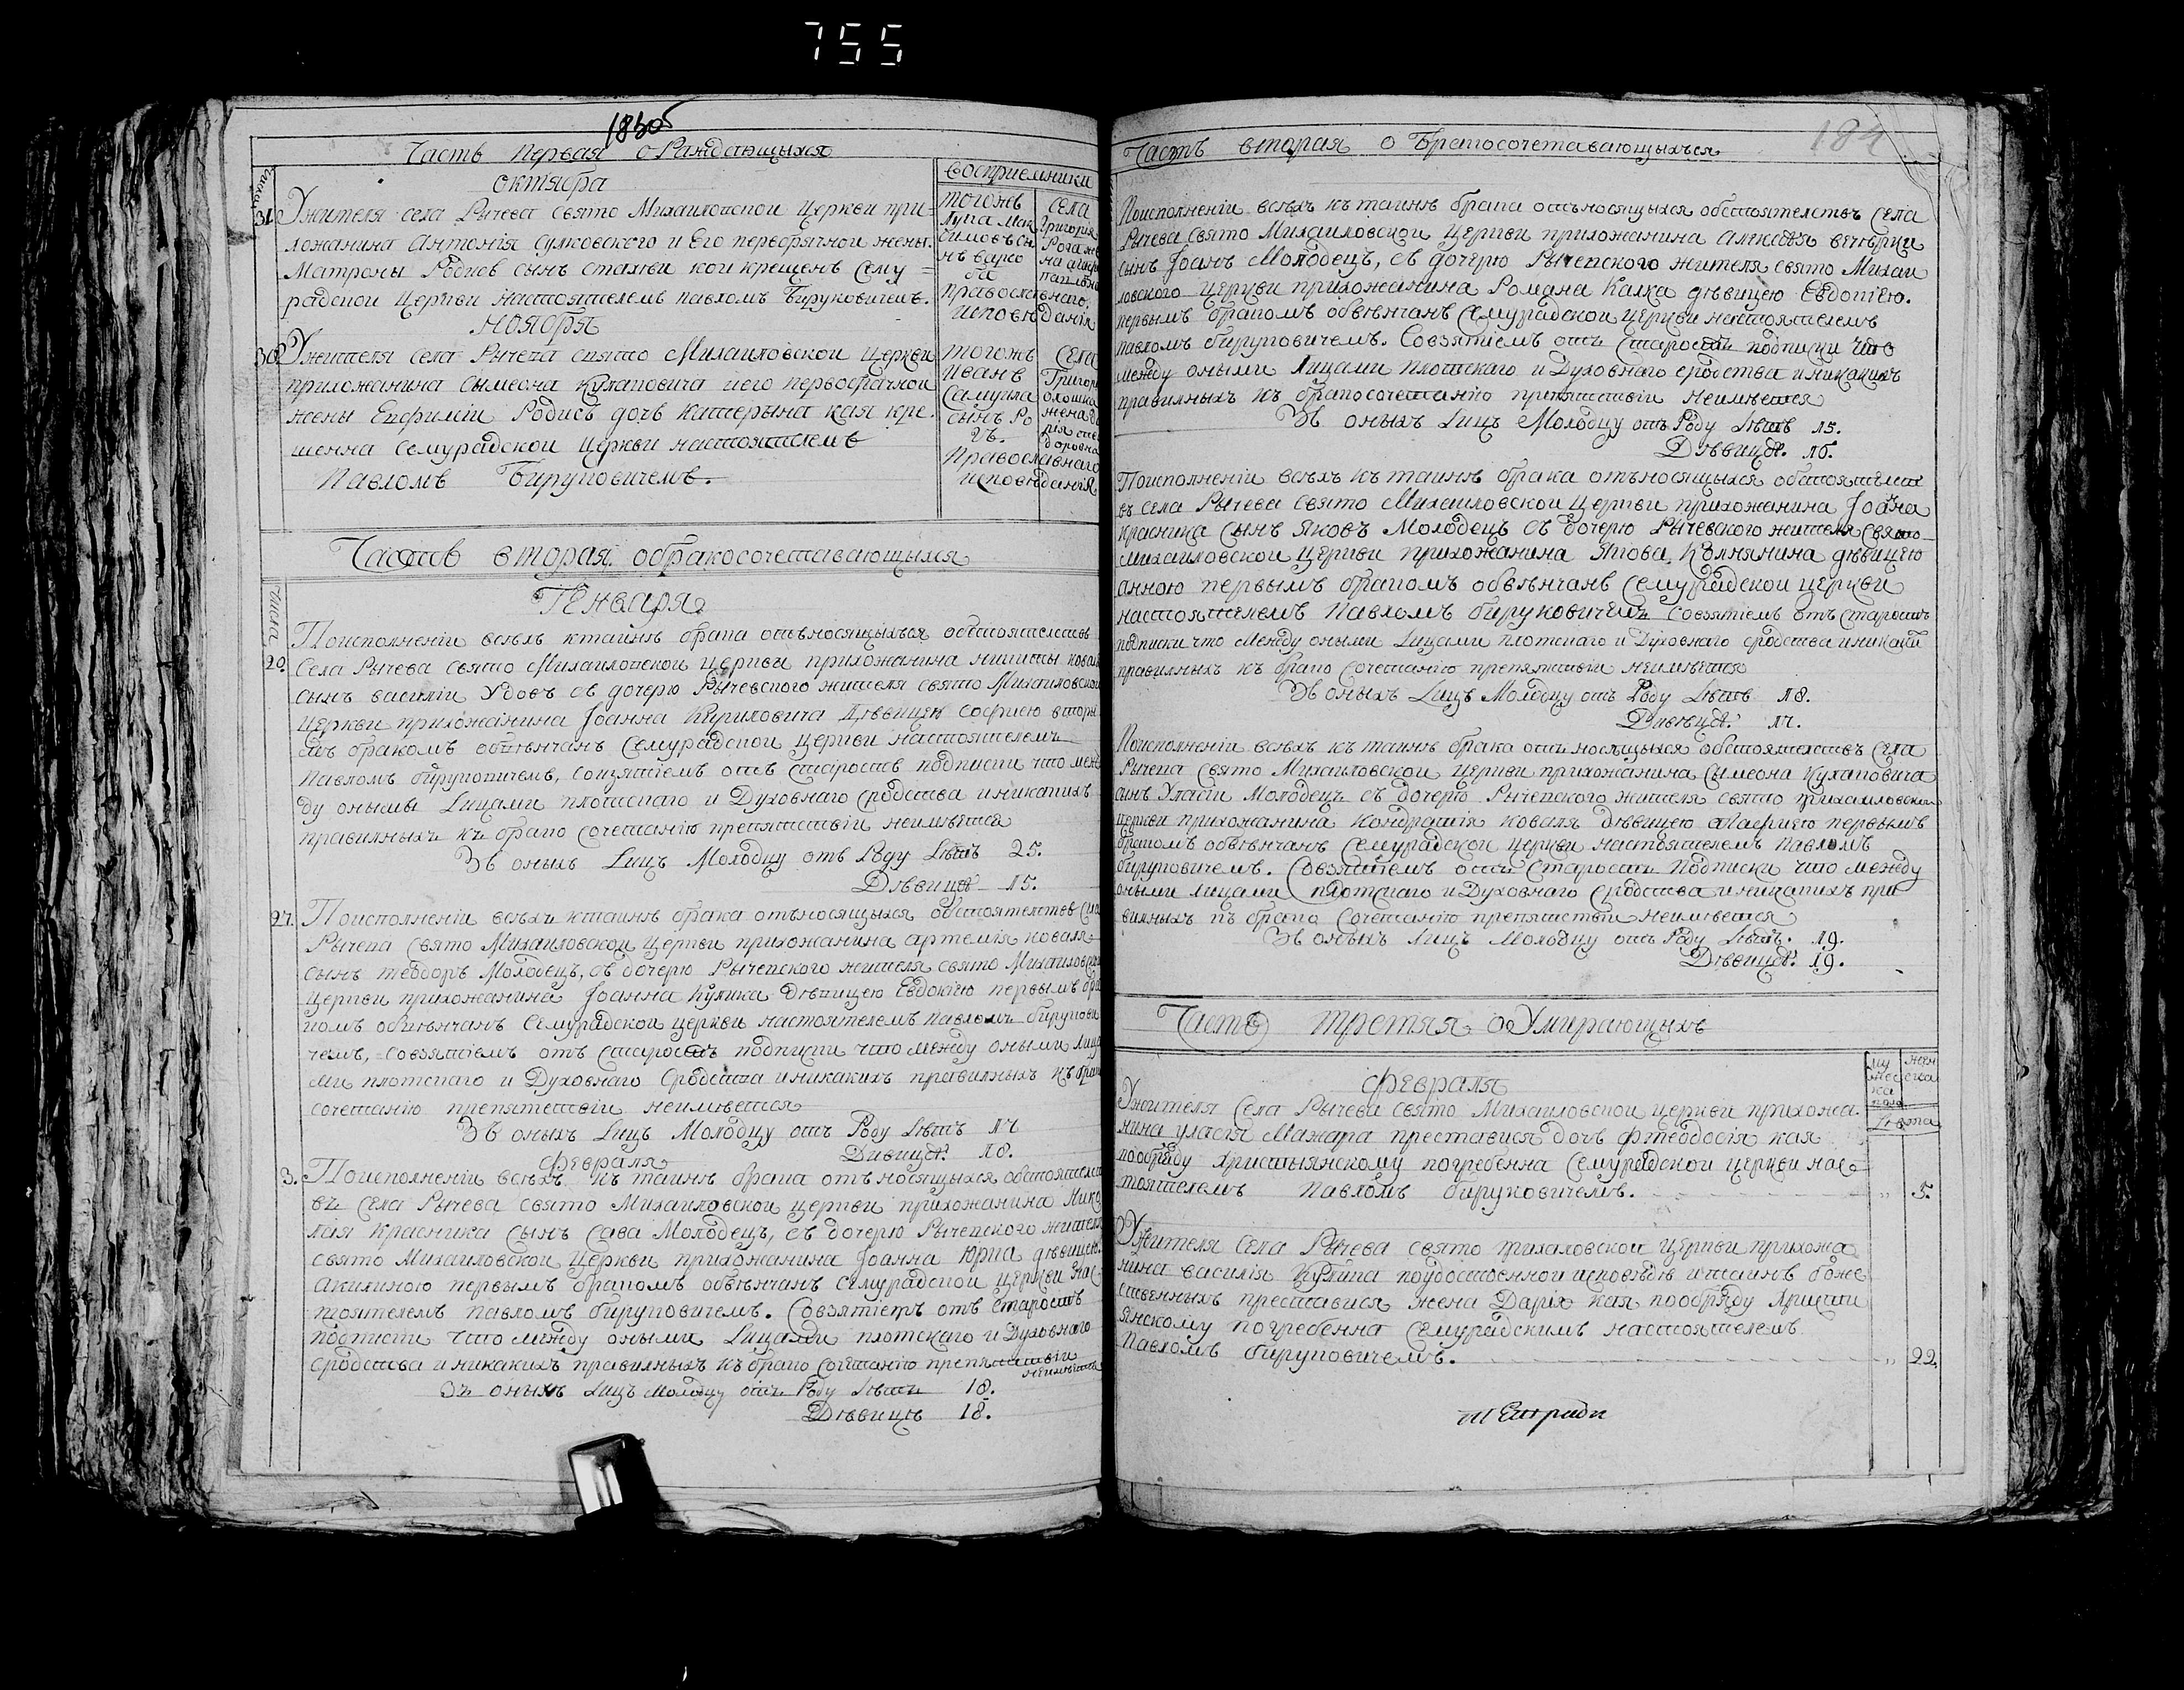 755
1830
Часть первая о Раждающыхся
Число
октября
восприемники
31. Ужителя села Рычева свято Михаиловской Церкви при=
хожанина Антонія Сулковского и Его первобрачной жены.
Матроны Родися сынъ стахви кой крещенъ Сему=
радской Церкви настоятелемъ павломъ Бируковичемъ.
тогожъ
Лупа Мак
симовъ сы
нъ
села
Григорія
Рога же
на
православнаго
исповѣданія
ноября
30. Ужителя села Рычева свято Михаиловской Церкви
прихожанина Сымеона Кухаповича и его первобрачной
жены Евфиміи Родись дочь катерына кая кре=
щенна Семурадской Церкви настоятелемъ
Павломъ Бируковичемъ.
тогожъ
Иванъ
Самуила
сынъ Ро
гъ.
села
Григор
олошка
жена да
рія
доровна
Православнаго
исповѣданія
Часть вторая обракосочетавающыхся
Числа
Генваря
Поисполненіи всѣхъ ктаинѣ брака отъносящыхъся обстоятелствъ
20. Села Рычева свято Михаиловской Церкви прихожанина никиты ковал
сынъ василіи Удовъ съ дочерю Рычевского жителя свято Михаиловской
Церкви прихожанина Јоанна Кириловича Дѣвицею Софиею вторы
мъ бракомъ обвѣнчанъ Семурадской Церкви настоятелемъ
Павломъ бируковичемъ, совзятіемъ отъ старостъ подписки что меж
ду оными Лицами плотскаго и Духовнаго сродства иникакихъ
правилныхъ къ брако сочетанію препятствіи неимѣется
Зъ оныхъ Лицъ Молодцу отъ Роду Лѣтъ 25.
Дѣвицѣ 15.
27. Поисполненіи всѣхъ ктаинѣ брака отъносящыхся обстоятелствъ Села
Рычева свято Михаиловской Церкви прихожанина артемія коваля
сынъ теодоръ Молодецъ, съ дочерю Рычевского жителя свято Михаиловской
Церкви прихожанина Јоанна Кулика дѣвицею Евдокіею первымъ бра
комъ обвѣнчанъ Семурадской церкви настоятелемъ павломъ бирукови
чемъ, совзятіемъ отъ старостъ подписки что между оными лица
ми плотскаго и Духовнаго Сродства иникакихъ правилныхъ къ брако
сочетанію препятствіи неимѣется
Зъ оныхъ Лицъ Молодцу отъ Роду Лѣтъ 17
Дивицѣ 18.
февраля
3. Поисполненіи всѣхъ къ таинѣ брака отъносящыхся обстоятелст
въ Села Рычева свято Михаиловской церкви прихожанина Нико
лая Красника сынъ Сава Молодецъ, съ дочерю Рычевского жителя
свято Михаиловской Церкви прихожанина Јоанна Юрца дѣвицею
Акилиною первымъ бракомъ обвѣнчанъ Семурадской Церкви Нас=
тоятелемъ павломъ бируковичемъ. Совзятіемъ отъ Старостъ
подписки что между оными Лицами плотскаго и Духовнаго
сродства иникакихъ правилныхъ къ брако сочетанію препятствіи
неимѣется
Зъ оныхъ Лицъ Молодцу отъ Роду Лѣтъ 18.
Дѣвицѣ 18.
184
Часть вторая о Бракосочетавающыхъся
Поисполненіи всѣхъ къ таинѣ брака отъносящыхся обстоятелствъ Села
Рычева свято Михаиловской Церкви прихожанина алексѣя вечорки
сынъ Јоанъ Молодецъ, съ дочерю Рычевского жителя свято Михаи
ловского церкви прихожанина Романа Калка дѣвицею Евдокіею.
первымъ бракомъ обвѣнчанъ Семурадской церкви настоятелемъ
павломъ бируковичемъ. Совзятіемъ отъ старостъ подписки что
между оными лицами плотскаго и Духовнаго сродства иникакихъ
правилныхъ къ бракосочетанію препятствіи неимѣется
Зъ оныхъ Лицъ Молодцу отъ Роду Лѣтъ 15.
Дѣвицѣ. 16.
Поисполненіи всѣхъ къ таинѣ брака отъносящыхся обстоятелст
въ села Рычева свято Михаиловской Церкви прихожанина Јоана
Красника сынъ яковъ Молодецъ съ дочерю Рычевского жителя свято
михаиловской Церкви прихожанина якова Колнянина дѣвицею
анною первымъ бракомъ обвѣнчанъ Семурадской церкви
настоятелемъ павломъ бируковичемъ совзятіемъ отъ старостъ
подписки что Между оными Лицами плотскаго и Духовнаго сродства иникакихъ
правилныхъ къ брако сочетанію препятствіи неимѣется
Зъ оныхъ Лицъ Молодцу отъ Роду Лѣтъ 18.
Дивицѣ. 17.
Поисполненіи всѣхъ къ таинѣ брака отъносящыхся обстоятелствъ Села
Рычева свято Михаиловской Церкви прихожанина Сымеона Кухаповича
сынъ Уласіи Молодецъ съ дочерю Рычевского жителя свято михаиловской
церкви прихожанина Кондратія коваля дѣвицею Агафиею первымъ
бракомъ обвѣнчанъ Семурадской Церкви настоятелемъ павломъ
бируковичемъ. Совзятіемъ отъ Старостъ подписки что между
оными лицами плотскаго и Духовнаго Сродства иникакихъ пра
вилныхъ къ брако Сочетанію препятствіи неимѣется
Зъ оныхъ Лицъ Молодцу отъ Роду Лѣтъ. 19.
Дѣвицѣ. 19.
Часть третяя о Умирающыхъ
му
жес
ка
пола
жен
ска
Лѣта
февраля
Ужителя Села Рычева свято Михаиловской церкви прихожа=
нина уласія Мажара преставися дочъ фтеодосія кая
пообряду христыянскому погребенна Семурадской церкви нас=
тоятелемъ павломъ бируковичемъ. „ 5.
Ужителя Села Рычева свято михаловской Церкви прихожа
нина василія Кулика поудостоенной исповѣдѣ итаинъ боже
ственныхъ преставися жена Дарія кая пообряду Христи
янскому погребенна семурадскимъ настоятелемъ
павломъ бируковичемъ. „ 22.